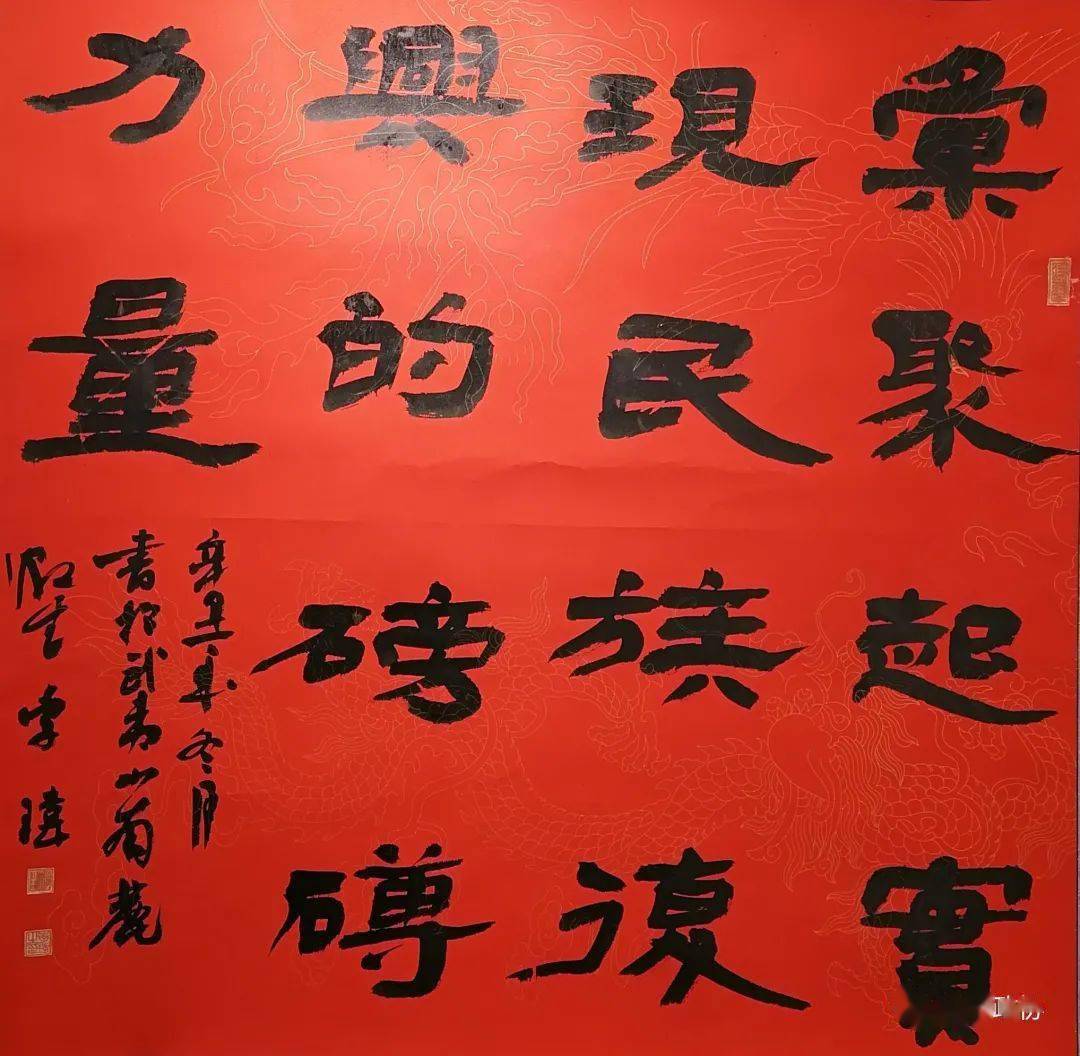 彙聚起實
現民族復
興的磅礴
力量
辛丑年冬月
書於武夷山南麓
李瑋